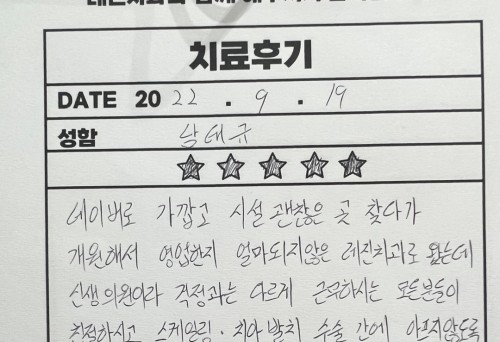 치료후기
DATE 2022 . 9 . 19
성함 남대규
네이버로 가깝고 시설 괜찮은 곳 찾다가
개원해서 영업한지 얼마되지않은 레진치과로 왔는데
신생의원이라 걱정과는 다르게 근무하시는 모든분들이
친절하시고 스케일링·치아발치 수술 간에 아프지않도록